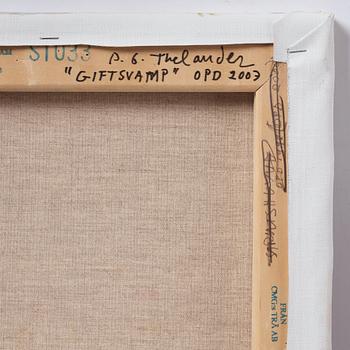 ST033 P. G. Thelander
"GIFTSVAMP" OPD 2003
FRÅN
CMG:s TRÄ AB